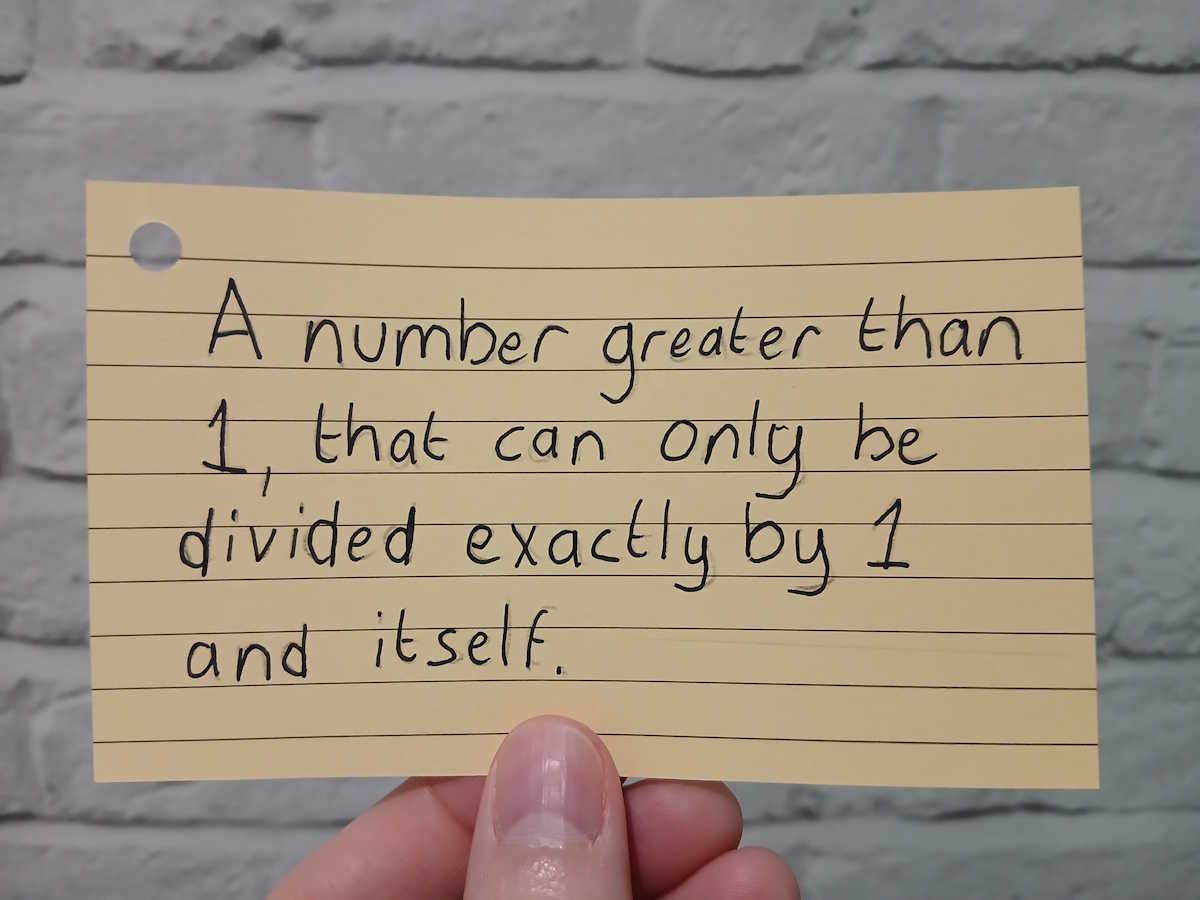 A number greater than
1, that can only be
divided exactly by 1
and itself.